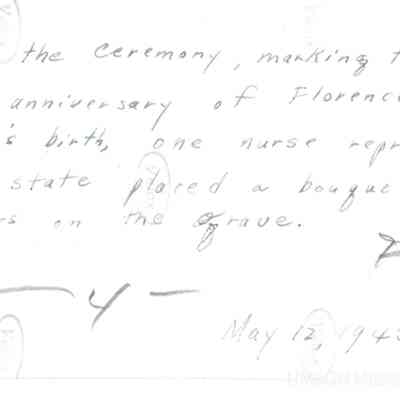 the ceremony, marking
anniversary of Florenc
's birth, one nurse repr
state placed a bouque
rs on the grave.
— 4 —
May 12, 194